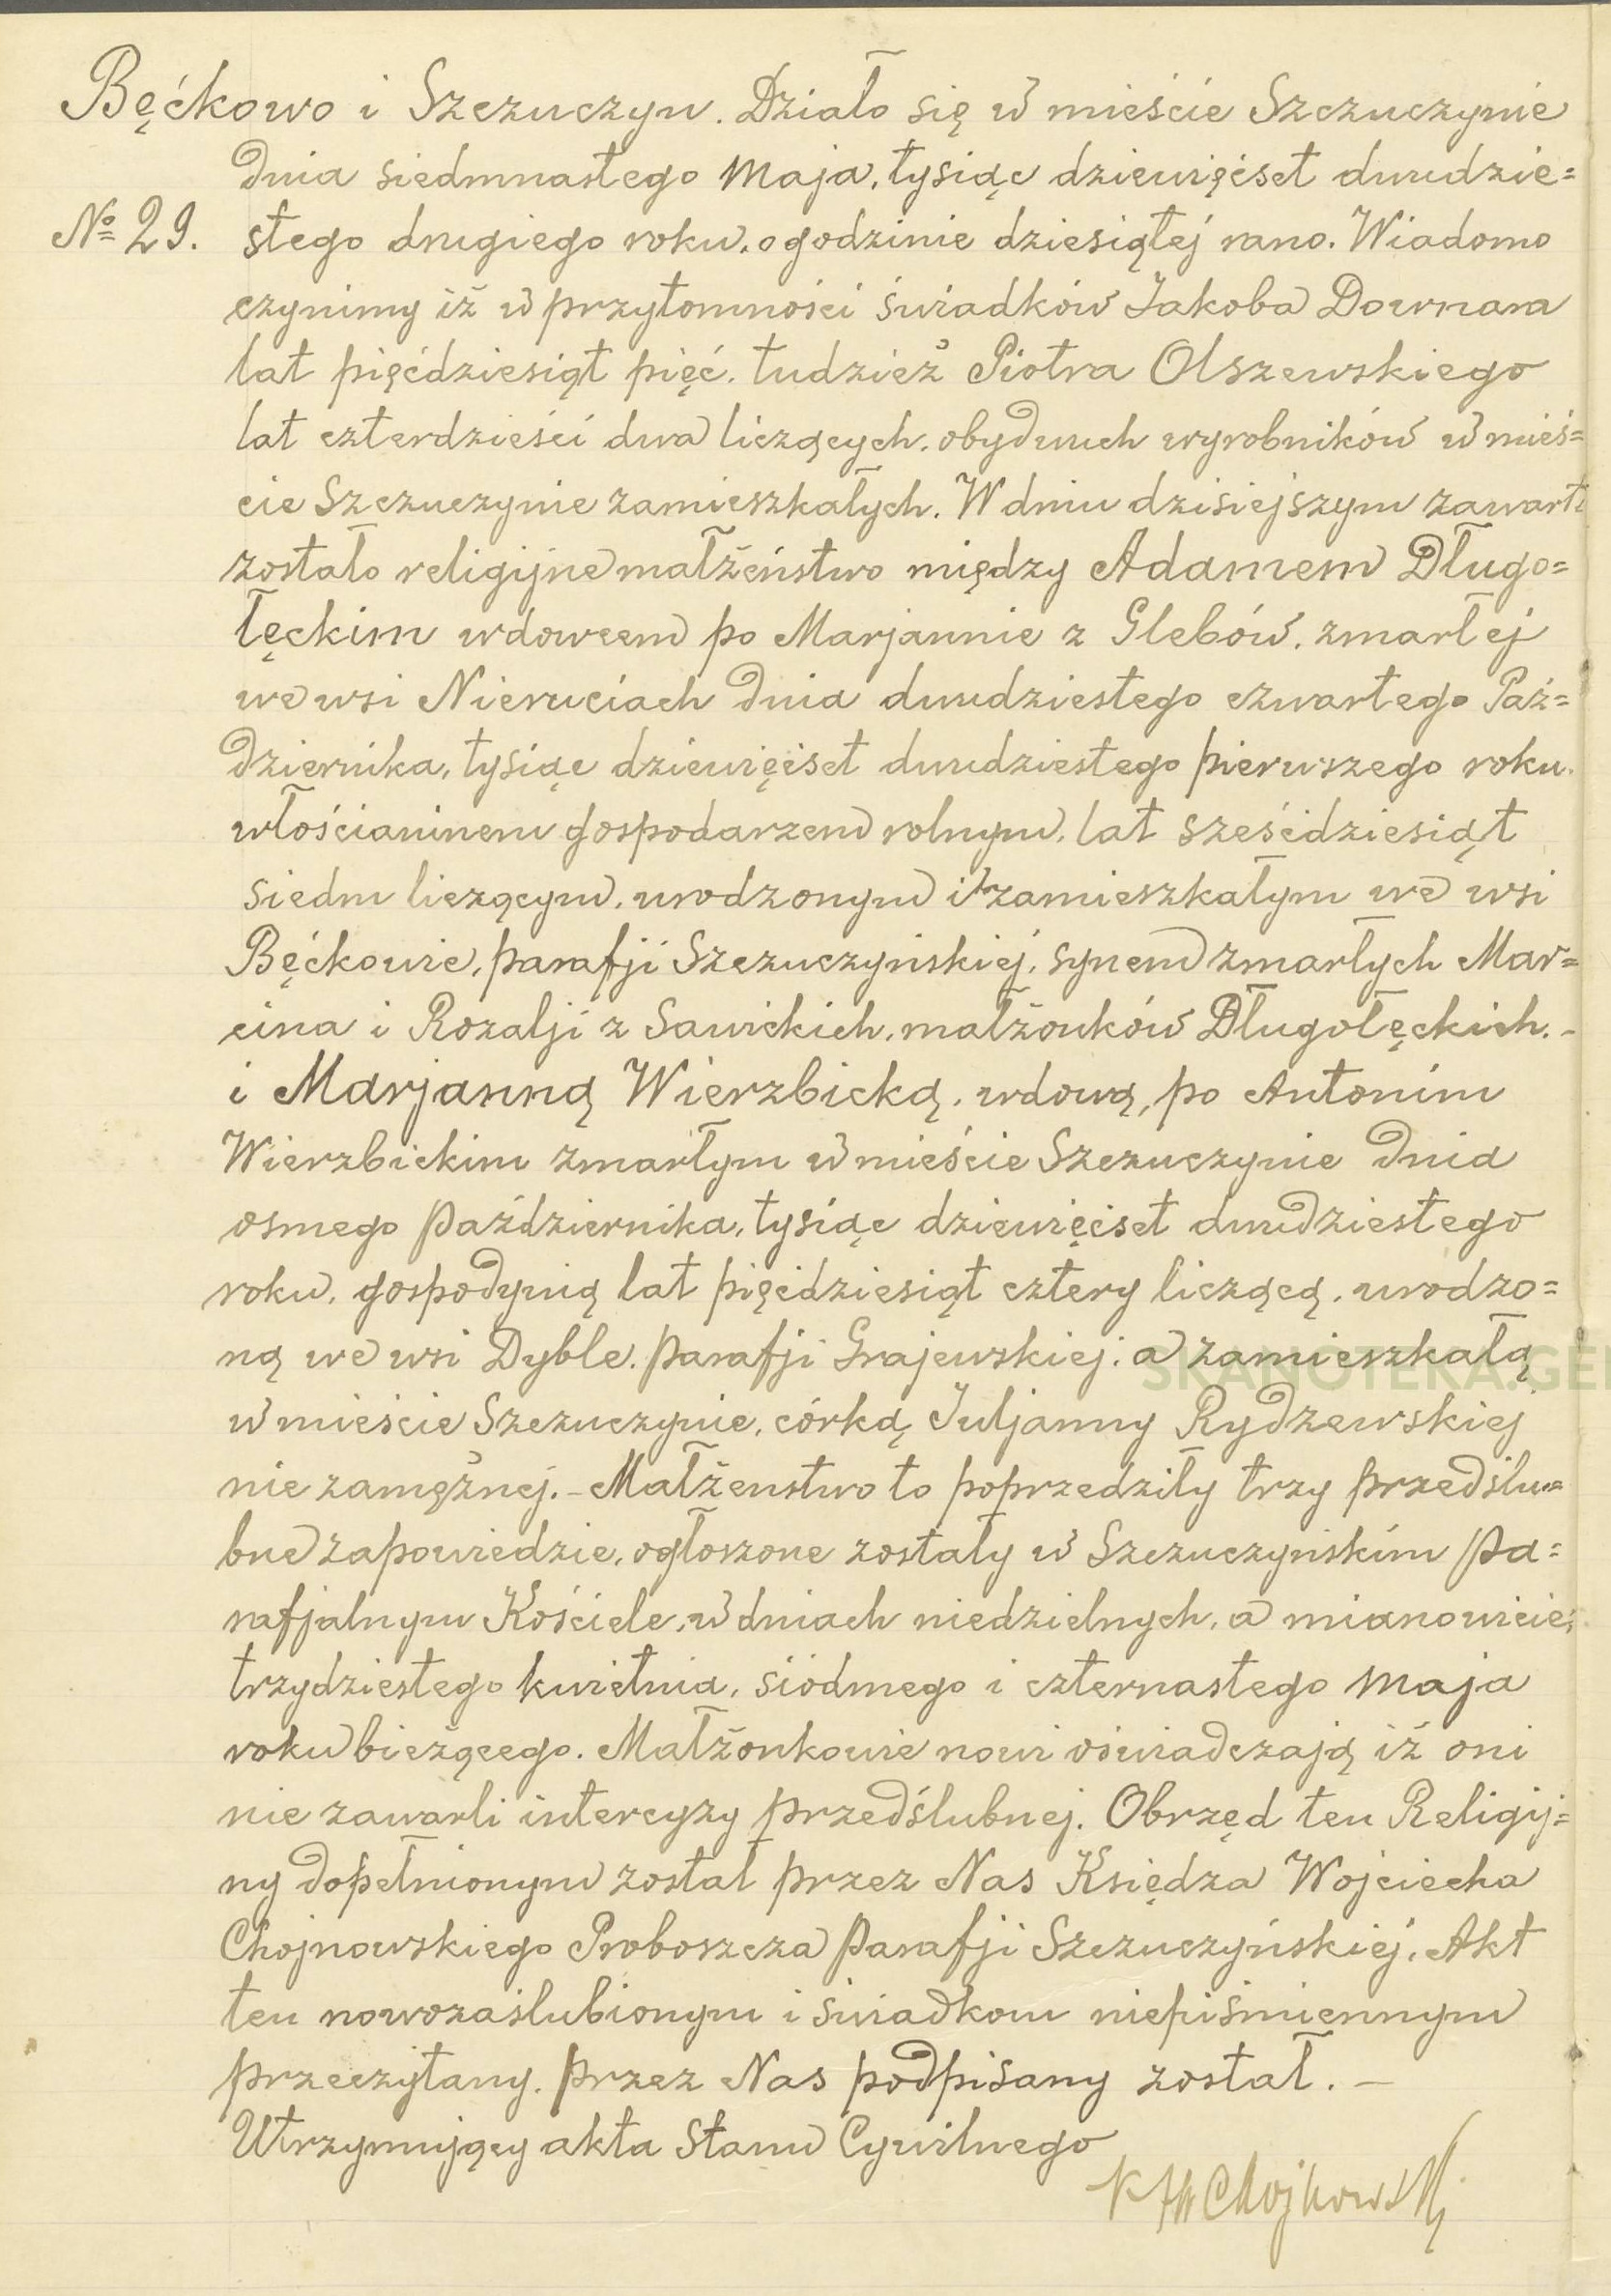 Bęćkowo i Szczuczyn. Działo się w mieście Szczuczynie
dnia siedmnastego maja, tysiąc dziewięćset dwudzie=
№ 29. stego drugiego roku, o godzinie dziesiątej rano. Wiadomo
czynimy iż w przytomności świadków Jakoba Downara
lat pięćdziesiąt pięć, tudzież Piotra Olszewskiego
lat czterdzieści dwa liczących, obydwuch wyrobników w mieś=
cie Szczuczynie zamieszkałych. W dniu dzisiejszym zawarte
zostało religijne małżeństwo między Adamem Długo=
łęckim wdowcem po Marjannie z Glebów, zmarłej
we wsi Nieruciach dnia dwudziestego czwartego Paź=
dziernika, tysiąc dziewięćset dwudziestego pierwszego roku,
włościaninem gospodarzem rolnym, lat sześćdziesiąt
siedm liczącym, urodzonym i zamieszkałym we wsi
Bęćkowie, parafji Szczuczyńskiej, synem zmarłych Mar=
cina i Rozalji z Sawickich, małżonków Długołęckich. -
i Marjanną Wierzbicką, wdową, po Antonim
Wierzbickim zmarłym w mieście Szczuczynie dnia
osmego października, tysiąc dziewięćset dwudziestego
roku, gospodynią lat pięćdziesiąt cztery liczącą, urodzo=
ną we wsi Dyble, parafji Grajewskiej, a zamieszkałą
w mieście Szczuczynie, córką Juljanny Rydzewskiej
nie zamężnej. - Małżenstwo to poprzedziły trzy przedślu=
bne zapowiedzie, ogłoszone zostały w Szczuczyńskim Pa=
rafjalnym Kościele, w dniach niedzielnych, a mianowicie,
trzydziestego kwietnia, siódmego i czternastego maja
roku bieżącego. Małżonkowie nowi oświadczają iż oni
nie zawarli intercyzy przedślubnej. Obrzęd ten Religij=
ny dopełnionym został przez Nas Księdza Wojciecha
Chojnowskiego Proboszcza Parafji Szczuczyńskiej. Akt
ten nowozaślubionym i świadkom niepiśmiennym
przeczytany, przez Nas podpisany został. -
Utrzymujący akta Stanu Cywilnego
X W Chojnowski
SKANOTEKA.GE